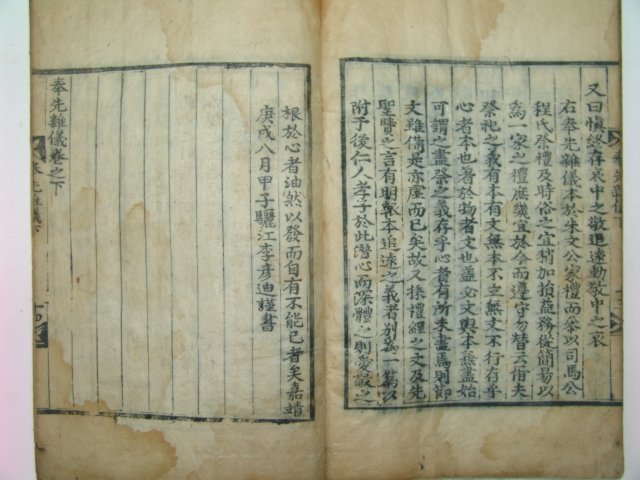 又曰愼終存哀中之敬追遠動敬中之哀
右奉先雜儀本於朱文公家禮而叅以司馬公
程氏祭禮及時俗之宜稍加損益務從簡易以
爲一家之禮庶幾宜於今而遵守勿替云爾夫
祭祀之義有本有文無本不立無文不行存乎
心者本也著於物者文也盖必文與本兼盡始
可謂之盡祭之義存乎心者有所未盡焉則節
文雖備是亦虛而已矣故又採禮經之文及先
聖賢之言有明報本追遠之義者別爲一篇以
附于後仁人孝子於此潛心而深體之則愛敬之
根於心者油然以發而自有不能已者矣嘉靖
庚戌八月甲子驪江李彥迪謹書
奉先雜儀卷之下
奉先雜儀下